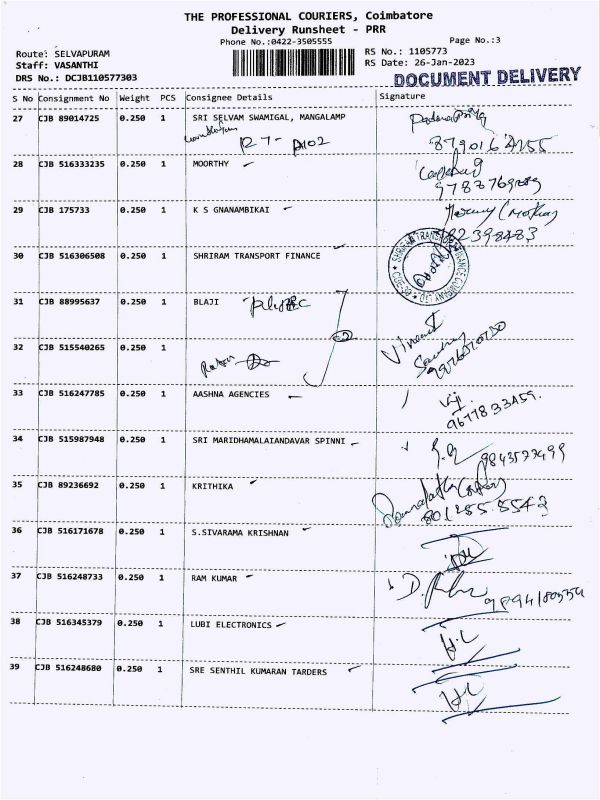 THE PROFESSIONAL COURIERS, Coimbatore
Delivery Runsheet - PRR
Phone No.:0422-3505555
Page No.:3
Route: SELVAPURAM
RS No.: 1105773
Staff: VASANTHI
RS Date: 26-Jan-2023
DRS No.: DCJB110577303
DOCUMENT DELIVERY
S No Consignment No Weight PCS Consignee Details Signature
27 CJB 89014725 0.250 1 SRI SELVAM SWAMIGAL, MANGALAMP
28 CJB 516333235 0.250 1 MOORTHY
29 CJB 175733 0.250 1 K S GNANAMBIKAI
30 CJB 516306508 0.250 1 SHRIRAM TRANSPORT FINANCE
31 CJB 88995637 0.250 1 BLAJI
32 CJB 515540265 0.250 1
33 CJB 516247785 0.250 1 AASHNA AGENCIES
34 CJB 515987948 0.250 1 SRI MARIDHAMALAIANDAVAR SPINNI
9843573499
35 CJB 89236692 0.250 1 KRITHIKA
36 CJB 516171678 0.250 1 S.SIVARAMA KRISHNAN
37 CJB 516248733 0.250 1 RAM KUMAR
38 CJB 516345379 0.250 1 LUBI ELECTRONICS
39 CJB 516248680 0.250 1 SRE SENTHIL KUMARAN TARDERS